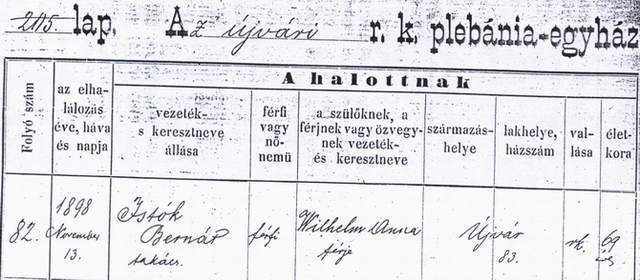 205 lap. Az újvári r. k. plebánia-egyház
A halottnak
Folyó szám
az elha-
lálozás
éve, háva
és napja
vezeték-
s keresztneve
állása
férfi
vagy
nő-
nemü
a szülőknek, a
férjnek vagy özvegy-
nek vezeték-
és keresztneve
származás-
helye
lakhelye,
házszám
val-
lása
élet-
kora
82.
1898
November
13.
Istók
Bernát
takács.
férfi
Wilhelm Anna
férje
Újvár
83.
rk.
69